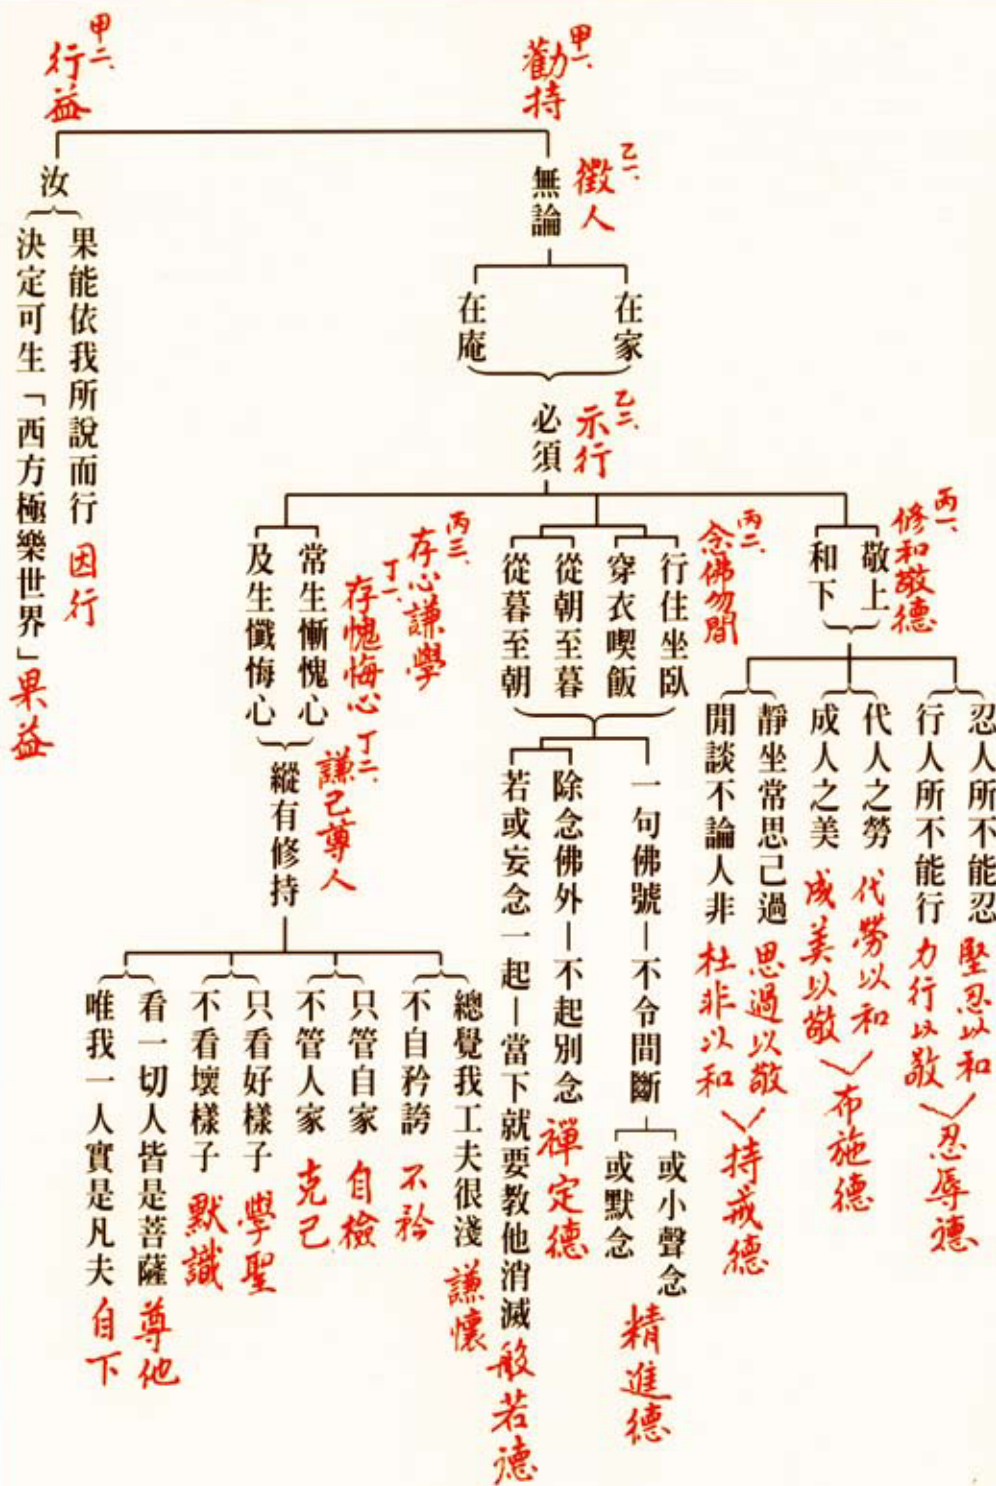 甲一、
勸持
乙一、
徵人
無論
在家
在庵
乙二、
示行
必須
丙一、
修和敬德
敬上
和下
忍人所不能忍 堅忍以和
行人所不能行 力行以敬
忍辱德
代人之勞 代勞以和
成人之美 成美以敬
布施德
靜坐常思己過 思過以敬
閒談不論人非 杜非以和
持戒德
丙二、
念佛勿間
行住坐臥
穿衣喫飯
從朝至暮
從暮至朝
一句佛號—不令間斷
或小聲念
或默念
精進德
除念佛外—不起別念 禪定德
若或妄念一起—當下就要教他消滅 般若德
丙三、
存心謙學
丁一、
存愧悔心
常生慚愧心
及生懺悔心
丁二、
謙己尊人
縱有修持
總覺我工夫很淺 謙懷
不自矜誇 不矜
只管自家 自檢
不管人家 克己
只看好樣子 學聖
不看壞樣子 默識
看一切人皆是菩薩 尊他
唯我一人實是凡夫 自下
甲二、
行益
汝
果能依我所說而行 因行
決定可生「西方極樂世界」 果益